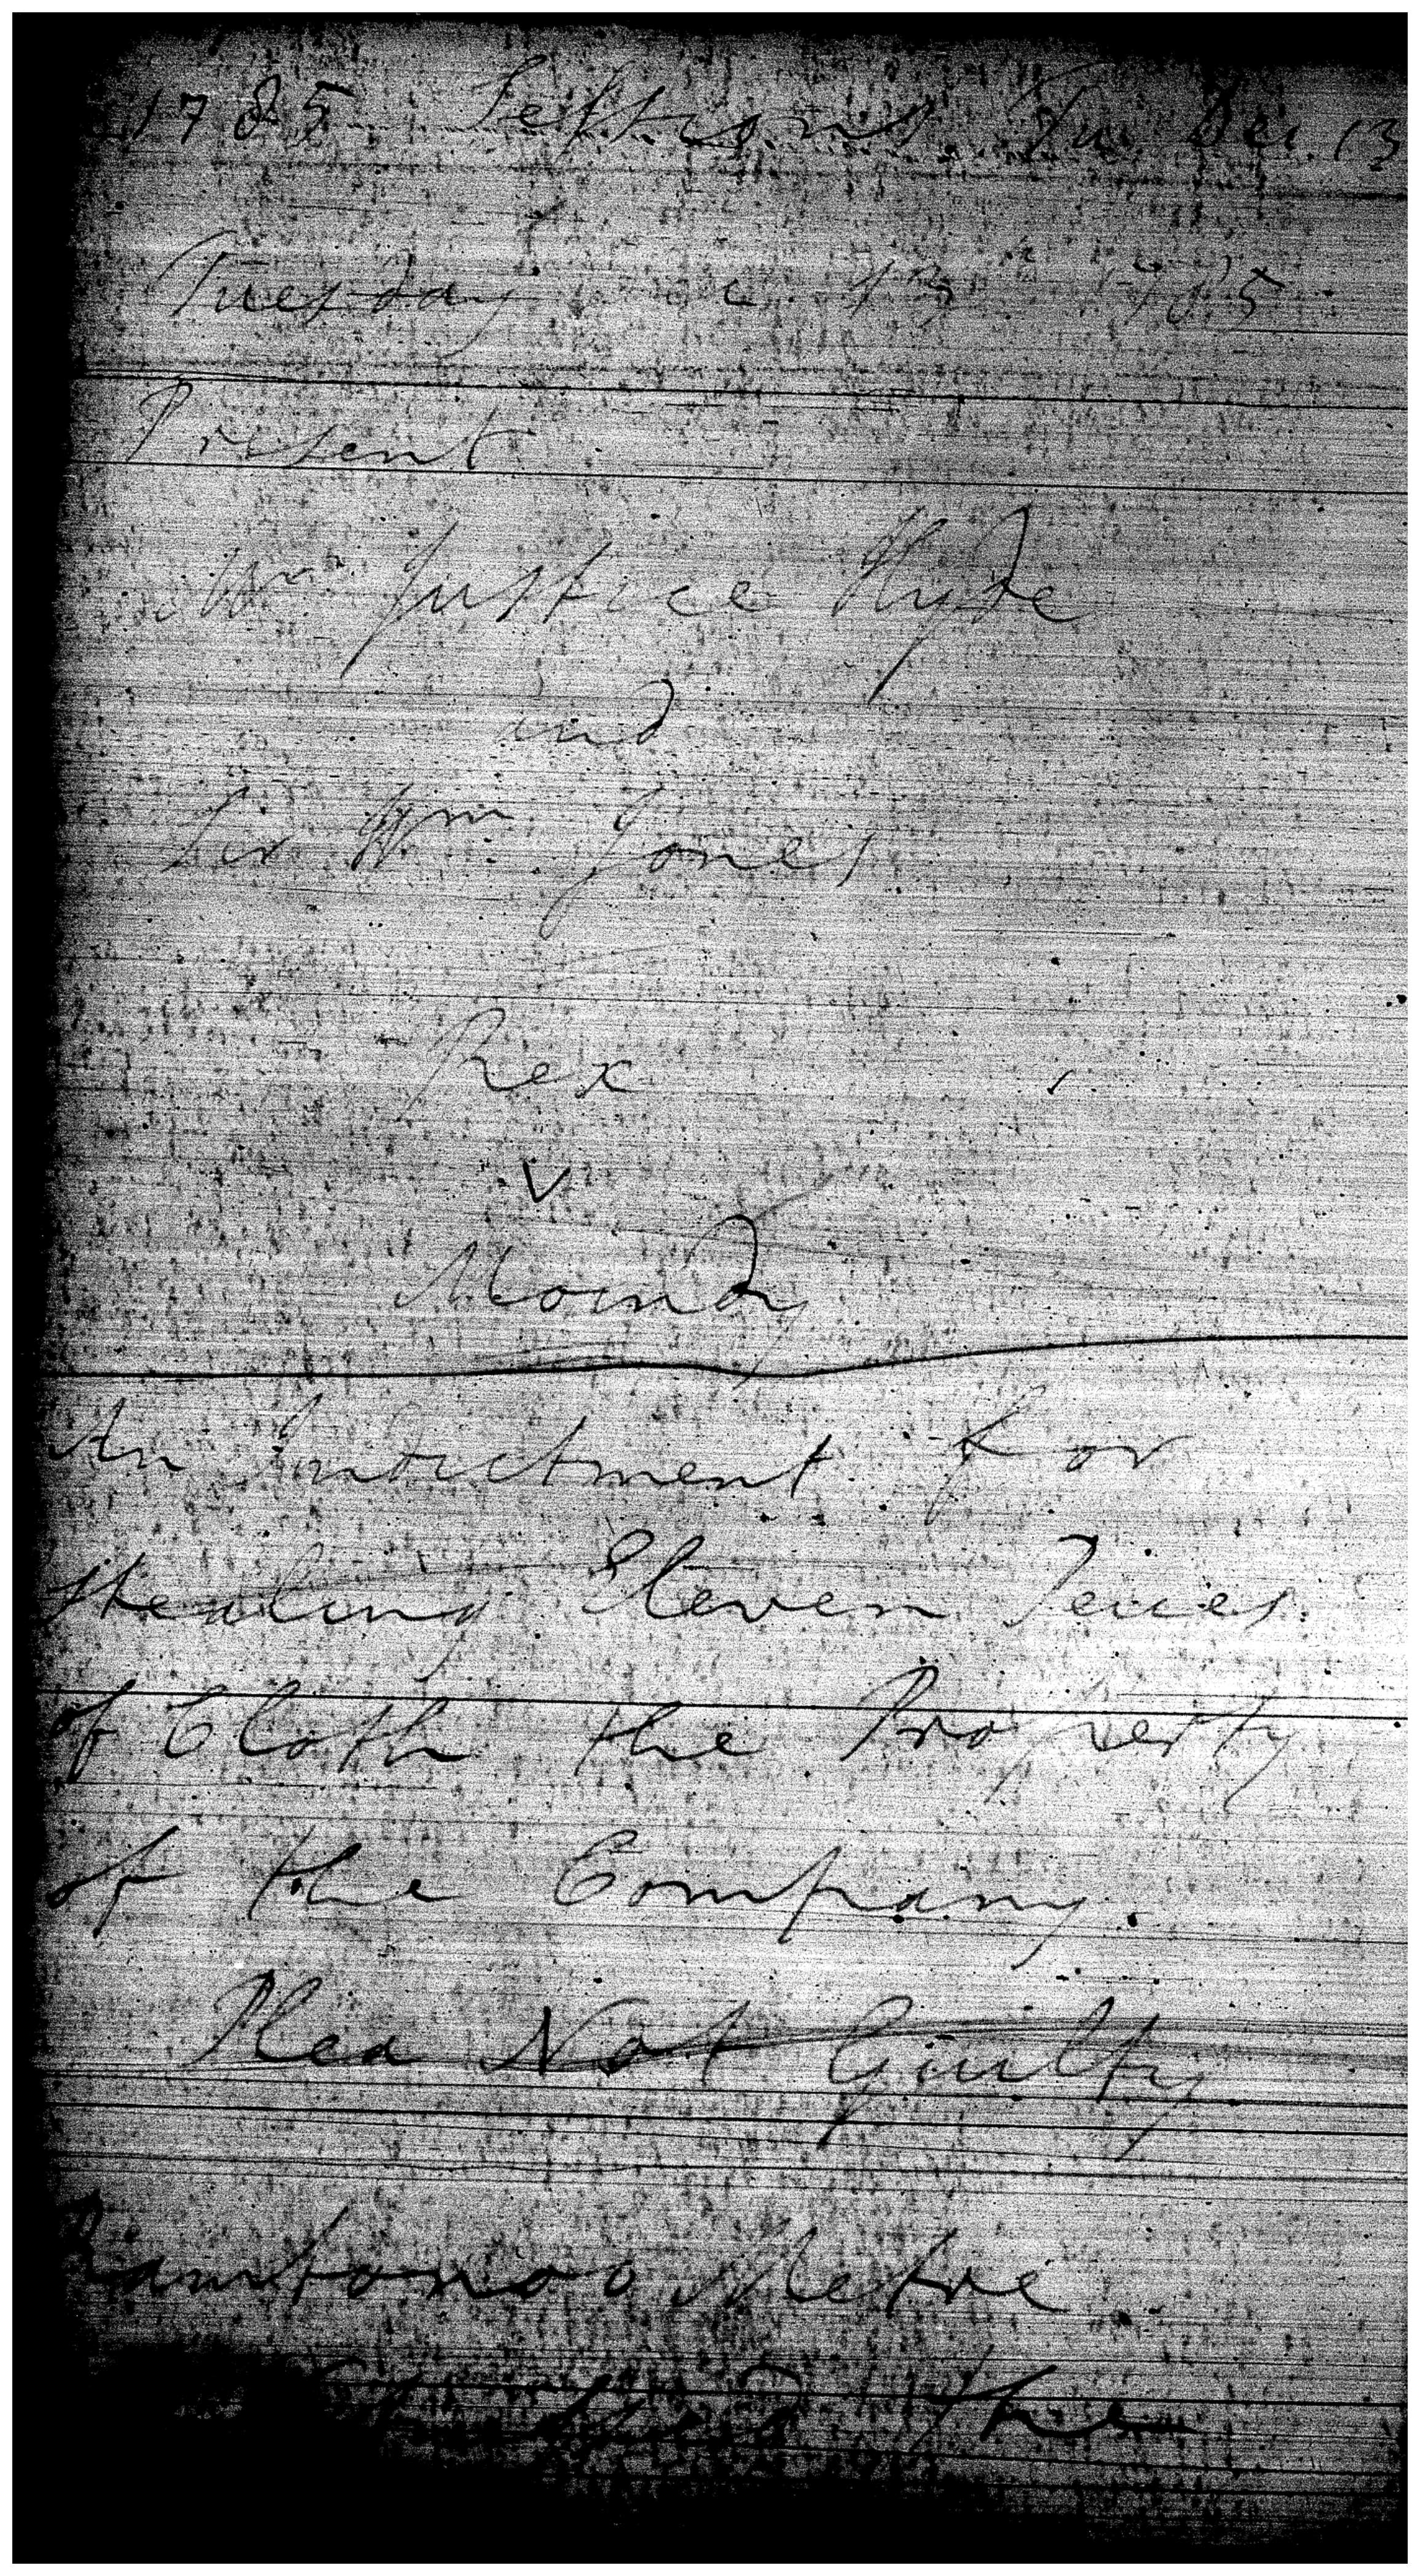 1785 Sessions Tu. Dec. 13
Tuesday 13 1785
Present
Mr. Justice Hyde
and
Sir Wm. Jones
Rex
v
An Indictment for
stealing Eleven Peices
of Cloth the Property
of the Company.
Plea Not Guilty
Metre
the